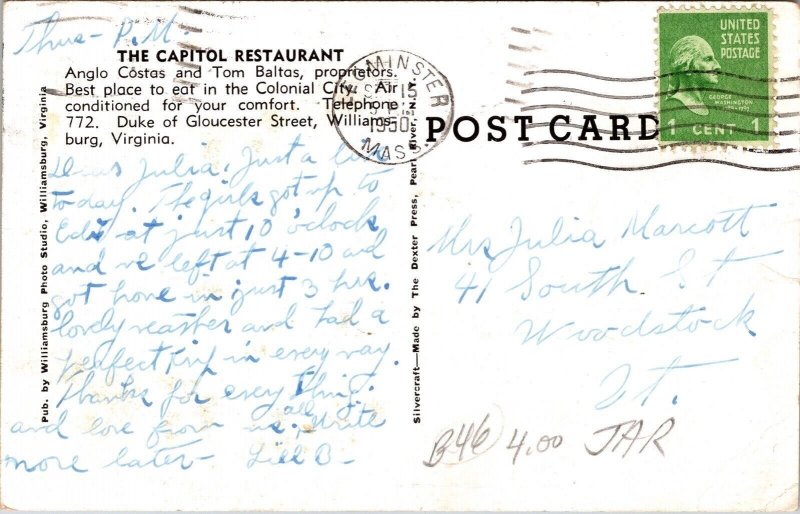 Thurs - P.M.
THE CAPITOL RESTAURANT
Anglo Costas and Tom Baltas, proprietors.
Best place to eat in the Colonial City. Air
conditioned for your comfort. Telephone
772. Duke of Gloucester Street, Williams-
burg, Virginia.
Dear Julia. Just a line
today. The girls got up to
at just 10 o'clock
and we left at 4-10 and
got home in just 3 hrs.
lovely weather and had a
perfect trip in every way.
Thanks for every thing.
and love from us all. Write
more later - B-
Pub. by Williamsburg Photo Studio, Williamsburg, Virginia
Silvercraft—Made by The Dexter Press, Pearl River, N.Y.
POST CARD
MINSTER
15
1950
MASS.
UNITED
STATES
POSTAGE
GEORGE
WASHINGTON
1 CENT 1
Mrs Julia Marcott
41 South St
Woodstock
Vt.
B46 4.00 JAR